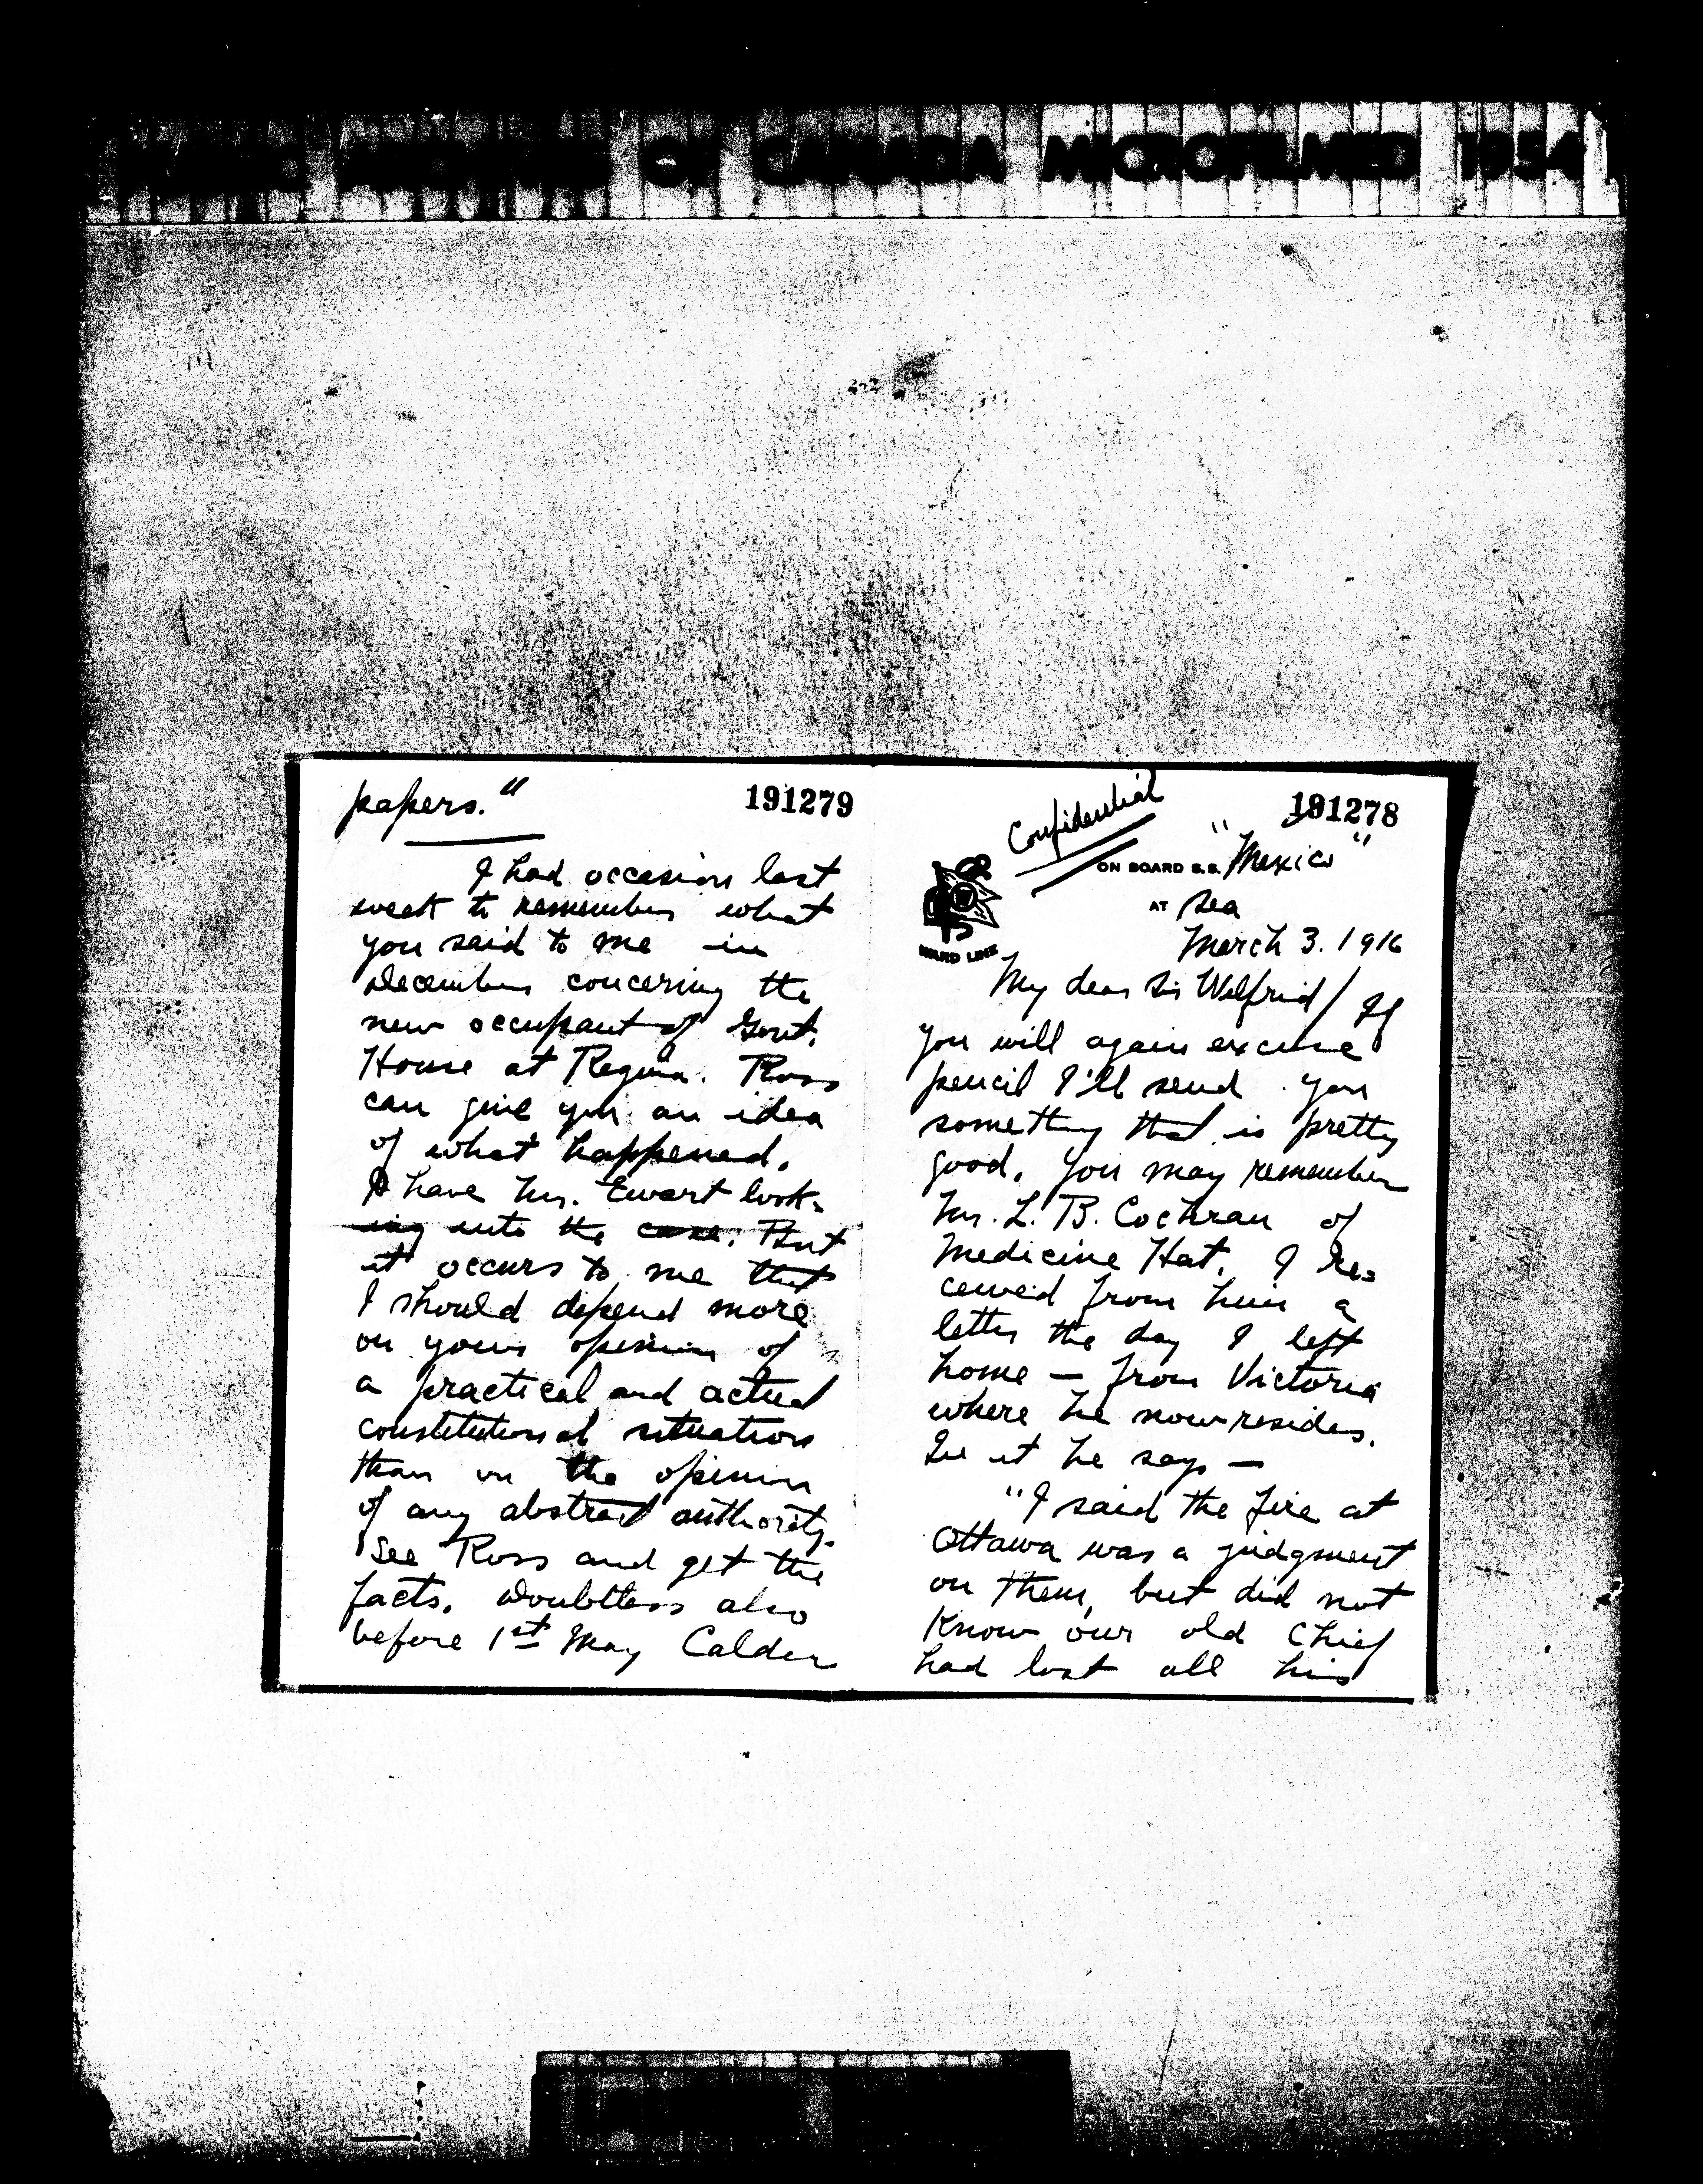 PUBLIC ARCHIVES OF CANADA MICROFILMED 1954
191278
Confidential
ON BOARD S.S. "Mexico"
AT Sea
WARD LINE
March 3. 1916
My dear Sir Wilfrid / If
you will again excuse
pencil I'll send you
something that is pretty
good. You may remember
Mr. L. B. Cochran of
Medicine Hat. I re=
ceived from him a
letter the day I left
home — from Victoria
where he now resides.
In it he says —
"I said the fire at
Ottawa was a judgment
on them, but did not
know our old Chief
had lost all his
191279
papers."
I had occasion last
week to remember what
you said to me in
December concering the
new occupant of Govt.
House at Regina. Ross
can give you an idea
of what happened.
I have Mr. Ewart look=
ing into the case. But
it occurs to me that
I should depend more
on your opinion of
a practical and actual
constitutional situation
than on the opinion
of any abstract authority.
See Ross and get the
facts. Doubtless also
before 1st May Calder